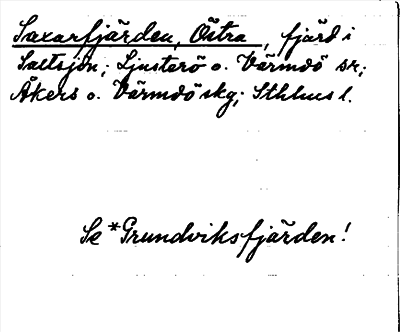 Saxarfjärden, Östra, fjärd i
Saltsjön; Ljusterö o. Värmdö sn;
Åkers o. Värmdö skg; Sthlms l.
Se *Grundviksfjärden!